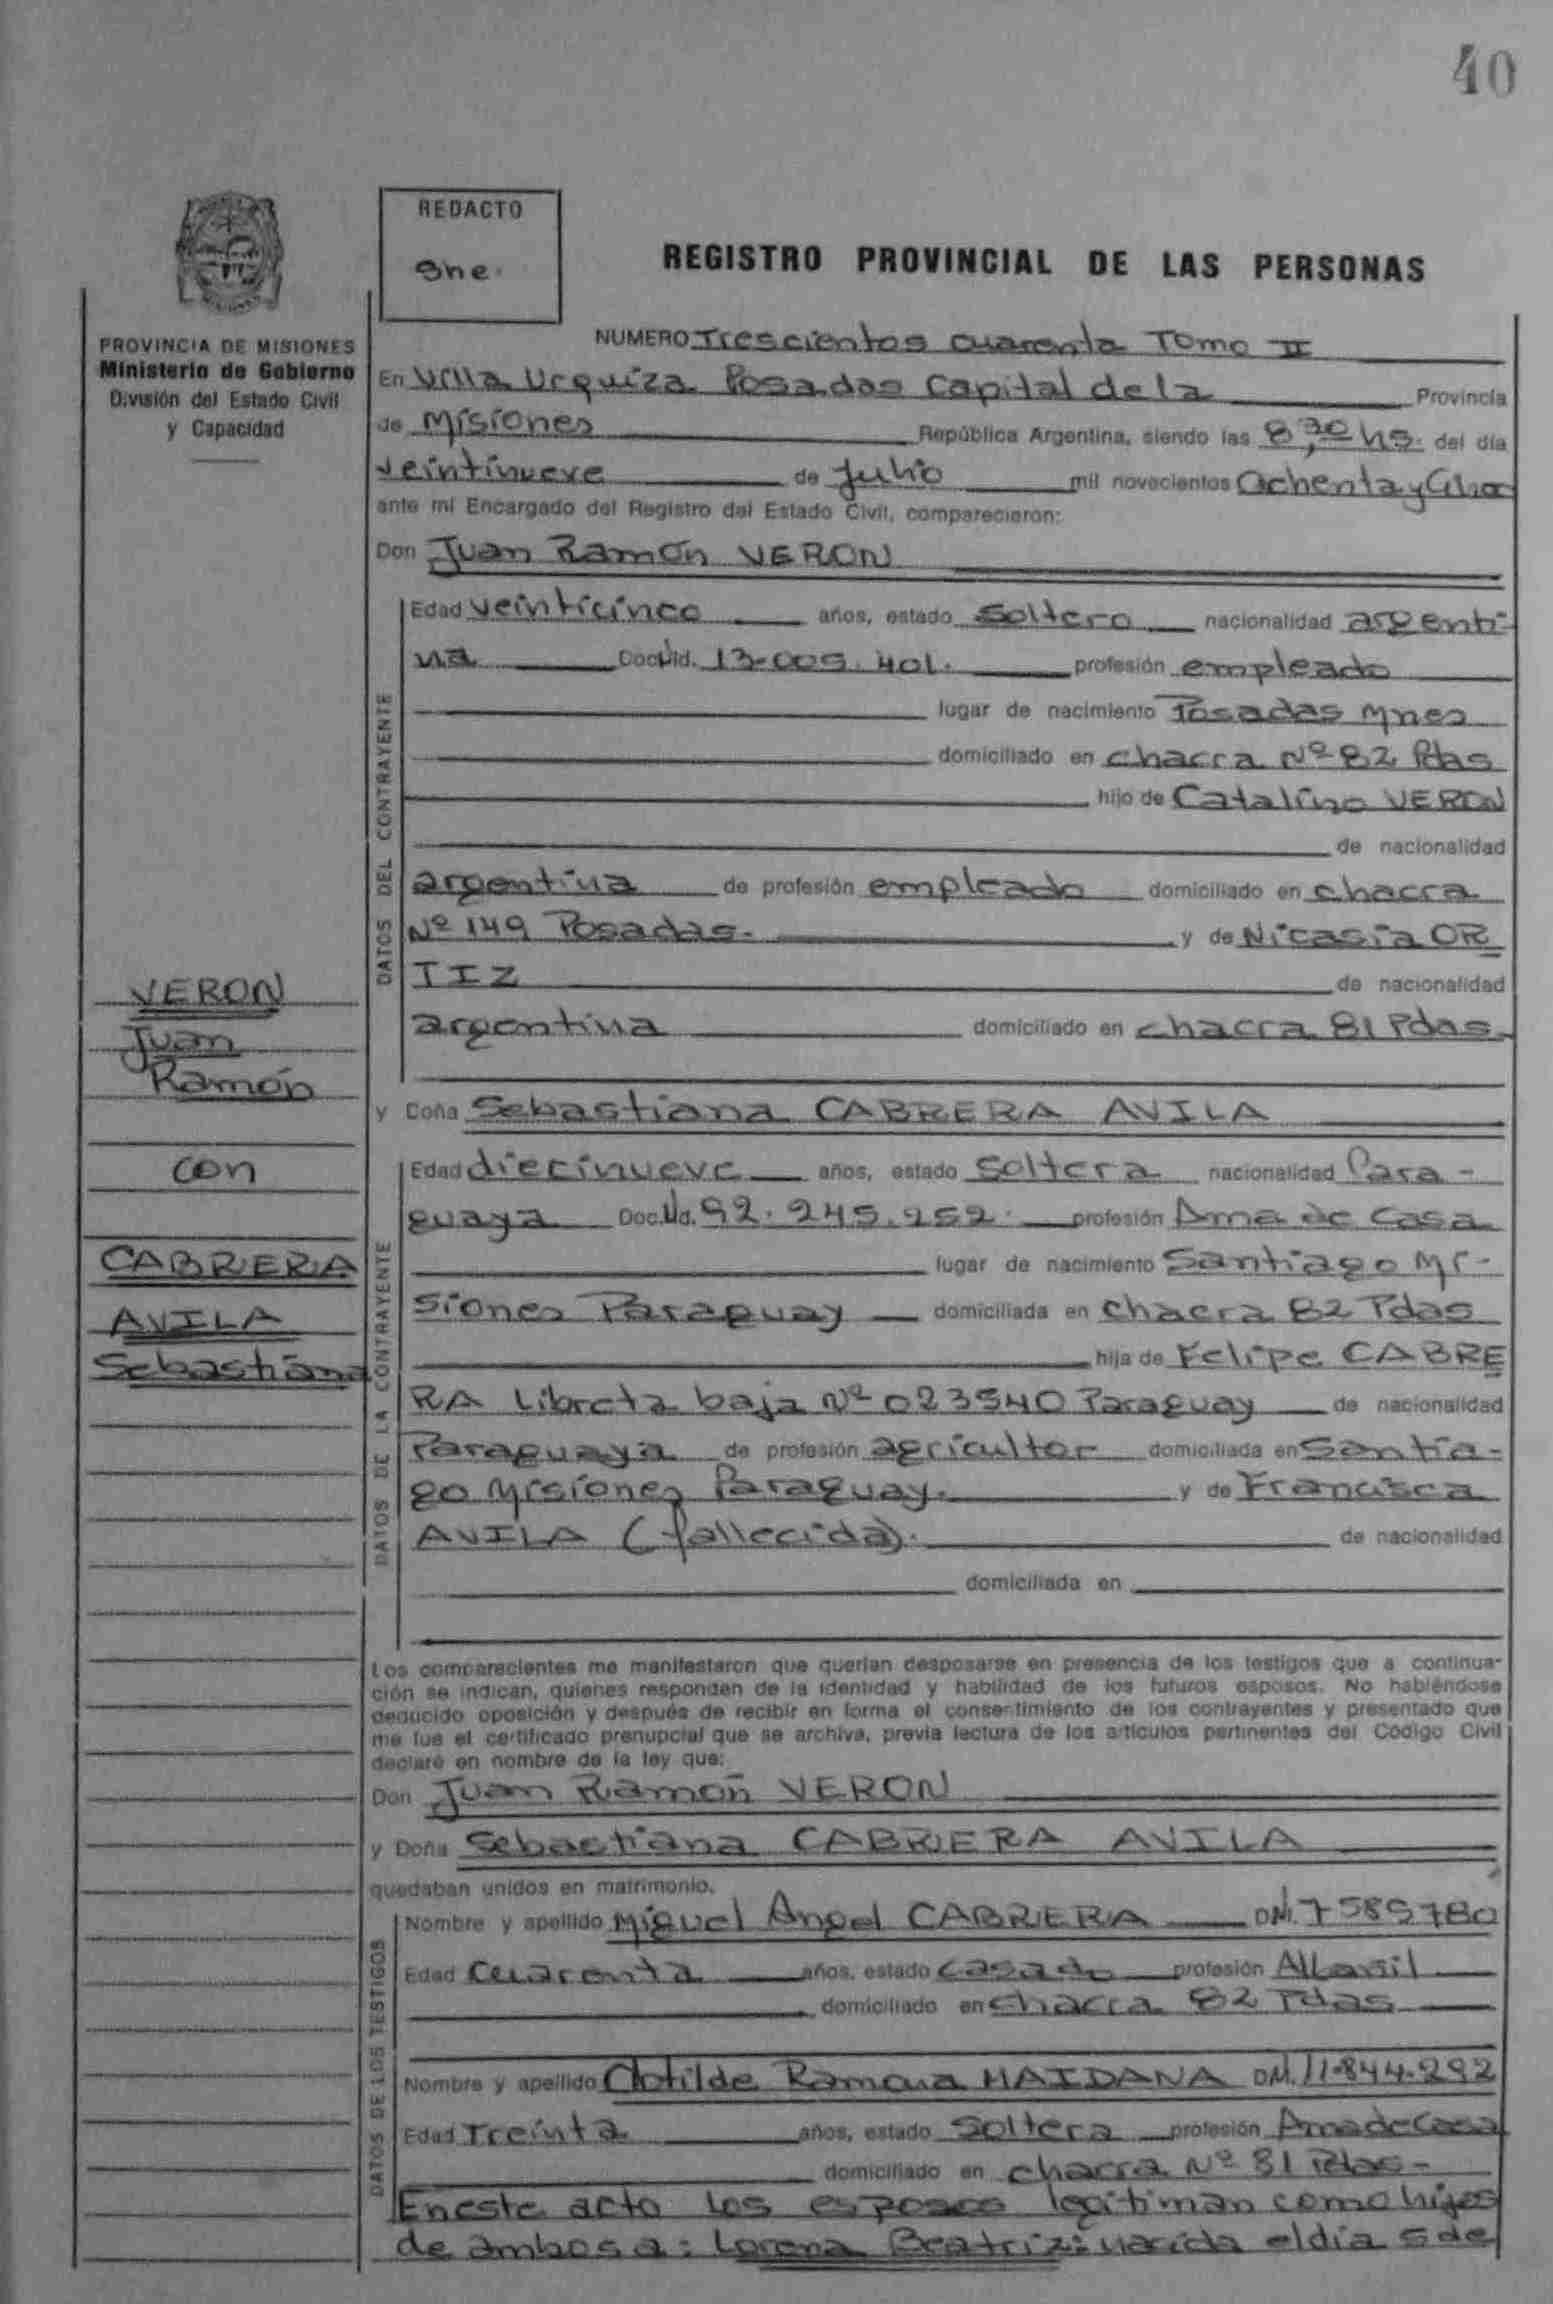 40
REDACTO
REGISTRO PROVINCIAL DE LAS PERSONAS
PROVINCIA DE MISIONES
Ministerio de Gobierno
División del Estado Civil
y Capacidad
NUMERO Trescientos cuarenta Tomo II
En Villa Urquiza Posadas Capital de la Provincia
de Misiones República Argentina, siendo las 8,30 hs. del día
veintinueve de Julio mil novecientos Ochenta y
ante mi Encargado del Registro del Estado Civil, comparecieron:
Don Juan Ramón VERON
DATOS DEL CONTRAYENTE
Edad veinticinco años, estado soltero nacionalidad argenti-
na Doc. Id. 13.005.401. profesión empleado
lugar de nacimiento Posadas Mnes
domiciliado en chacra Nº 82 Pdas
hijo de Catalino VERON
de nacionalidad
argentina de profesión empleado domiciliado en chacra
Nº 149 Posadas. y de Nicasia OR
TIZ de nacionalidad
argentina domiciliado en chacra 81 Pdas.
VERON
Juan
Ramón
con
CABRERA
AVILA
Sebastiana
y Doña Sebastiana CABRERA AVILA
DATOS DE LA CONTRAYENTE
Edad diecinueve años, estado soltera nacionalidad Para-
guaya Doc. Id. 92.245.252. profesión Ama de Casa
lugar de nacimiento Santiago Mi-
siones Paraguay domiciliada en chacra 82 Pdas
hija de Felipe CABRE
RA Libreta baja Nº 023540 Paraguay de nacionalidad
Paraguaya de profesión agricultor domiciliada en Santia-
go Misiones Paraguay. y de Francisca
AVILA (fallecida). de nacionalidad
domiciliada en
Los comparecientes me manifestaron que querían desposarse en presencia de los testigos que a continua-
ción se indican, quienes responden de la identidad y habilidad de los futuros esposos. No habiéndose
deducido oposición y después de recibir en forma el consentimiento de los contrayentes y presentado que
me fue el certificado prenupcial que se archiva, previa lectura de los artículos pertinentes del Código Civil
declaré en nombre de la ley que:
Don Juan Ramón VERON
y Doña Sebastiana CABRERA AVILA
quedaban unidos en matrimonio.
DATOS DE LOS TESTIGOS
Nombre y apellido Miguel Angel CABRERA DNI. 7585780
Edad Cuarenta años, estado casado profesión Albañil
domiciliado en chacra 82 Pdas
Nombre y apellido Clotilde Ramona MAIDANA DNI. 11.844.292
Edad Treinta años, estado soltera profesión Ama de Casa
domiciliado en chacra Nº 81 Pdas-
En este acto los esposos legitiman como hijos
de ambos a: Lorena Beatriz: nacida el día 5 de